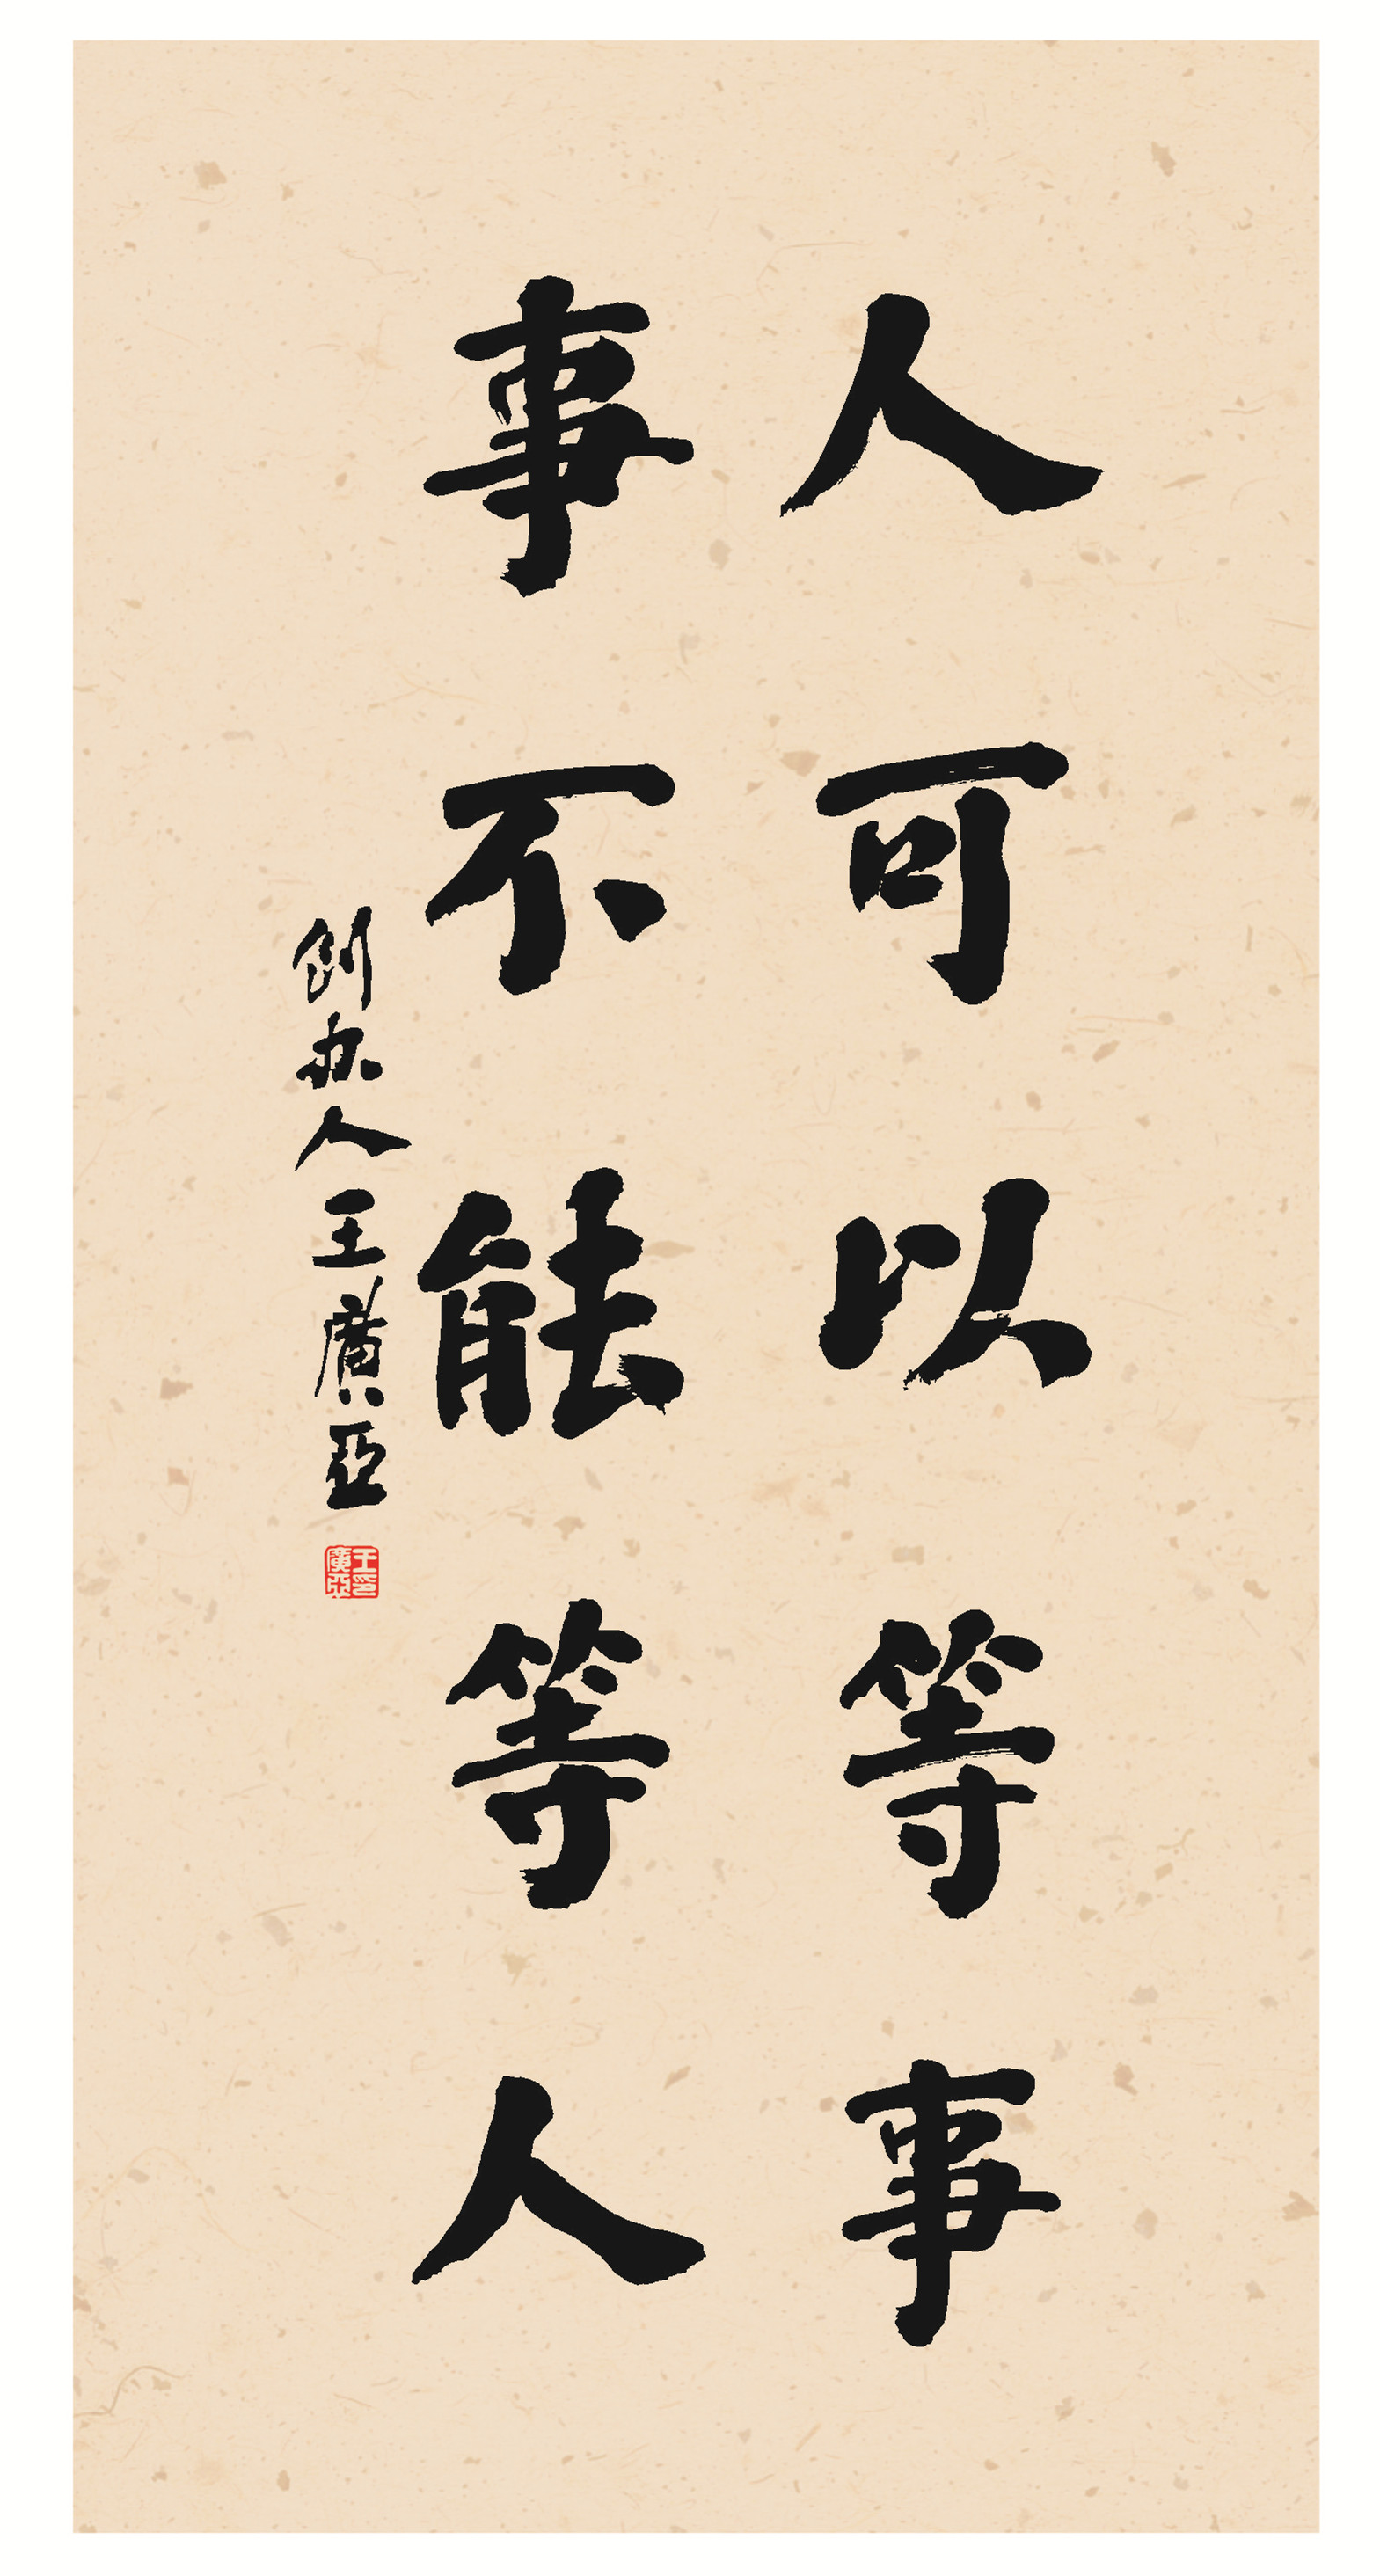 人可以等事
事不能等人
创办人王廣亞
王印廣亞